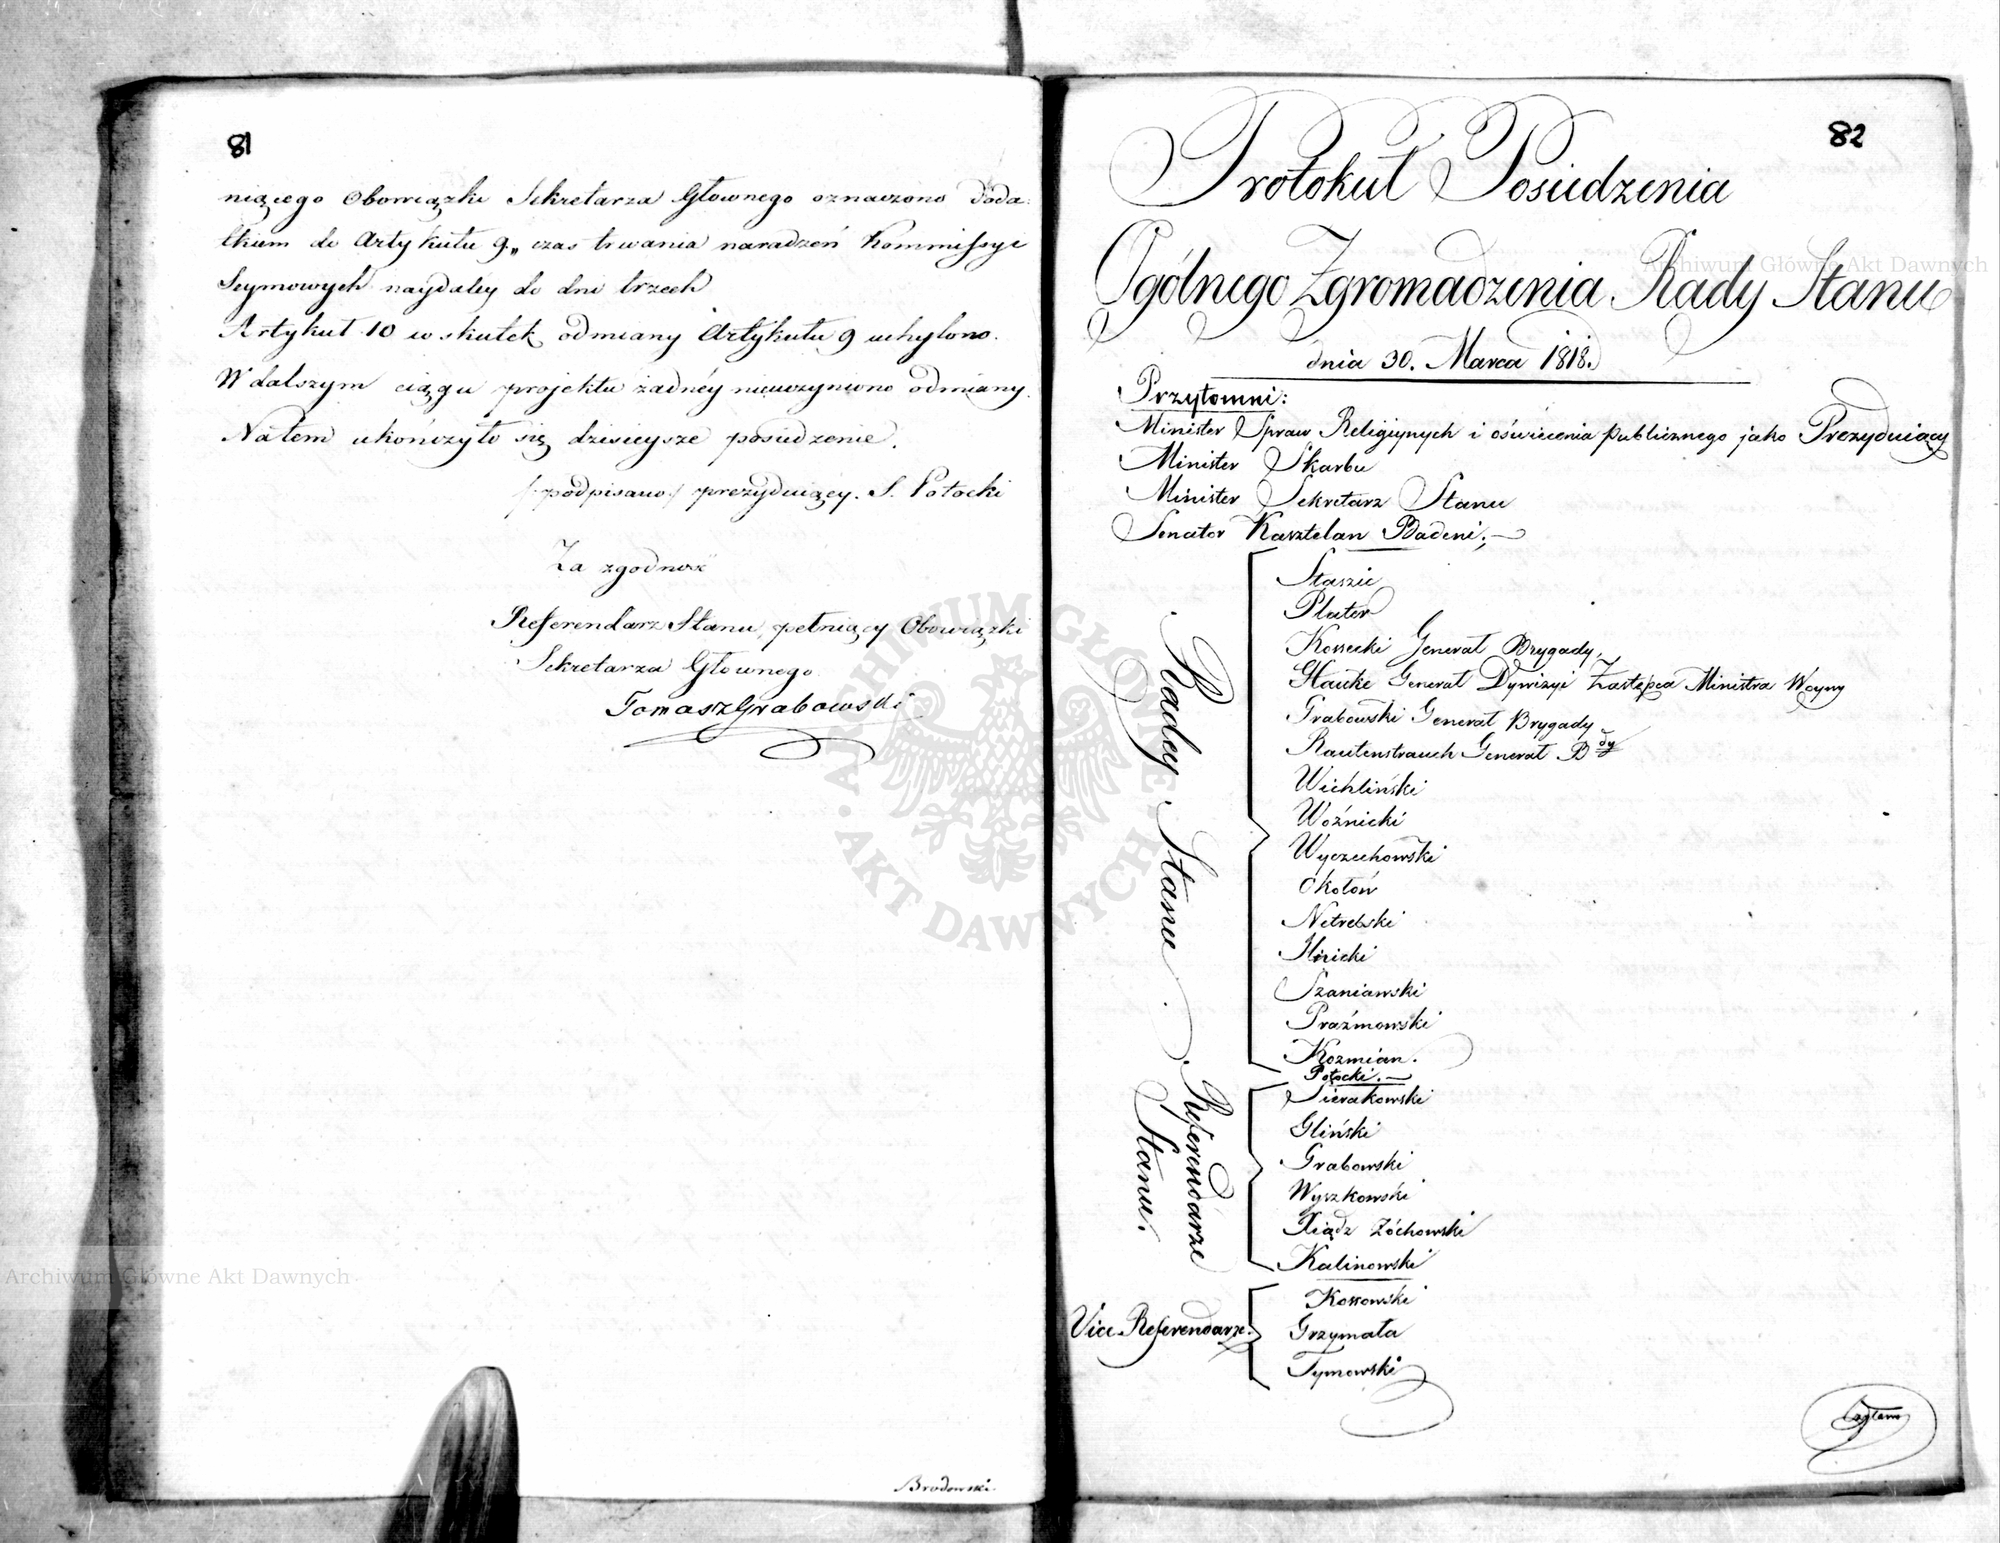 81
niącego Obowiązki Sekretarza Głownego oznaczono doda-
tkiem do Artykułu 9„ czas trwania naradzeń Kommissyi
Seymowych naydaley do dni trzech
Artykuł 10 w skutek odmiany Artykułu 9 uchylono.
W dalszym ciągu projektu żadnéy nieuczyniono odmiany.
Natem ukończyło się dzisieysze posiedzenie.
/podpisano/ prezyduiący. S. Potocki
Za zgodność
Referendarz Stanu, pełniący Obowiązki
Sekretarza Głownego
Tomasz Grabowski
Brodowski.
82
Protokuł Posiedzenia
Ogólnego Zgromadzenia Rady Stanu
dnia 30. Marca 1818.
Przytomni:
Minister Spraw Religiynych i oświecenia publicznego jako Prezyduiący
Minister Skarbu
Minister Sekretarz Stanu
Senator Kasztelan Badeni;
Radcy Stanu.
Staszic
Plater
Kossecki Generał Brygady,
Hauke Generał Dywizyi Zastępca Ministra Woyny
Grabowski Generał Brygady
Rautenstrauch Generał Bdy
Wichliński
Woźnicki
Wyczechowski
Okołow
Netrebski
Szaniawski
Praźmowski
Kozmian.
Potocki.
Referendarze Stanu.
Sierakowski
Gliński
Grabowski
Wyszkowski
Xiądz Zóchowski
Kalinowski
Vice-Referendarze.
Kossowski
Grzymała
Tymowski
Archiwum Główne Akt Dawnych
Archiwum Główne Akt Dawnych
ARCHIWUM GŁÓWNE AKT DAWNYCH